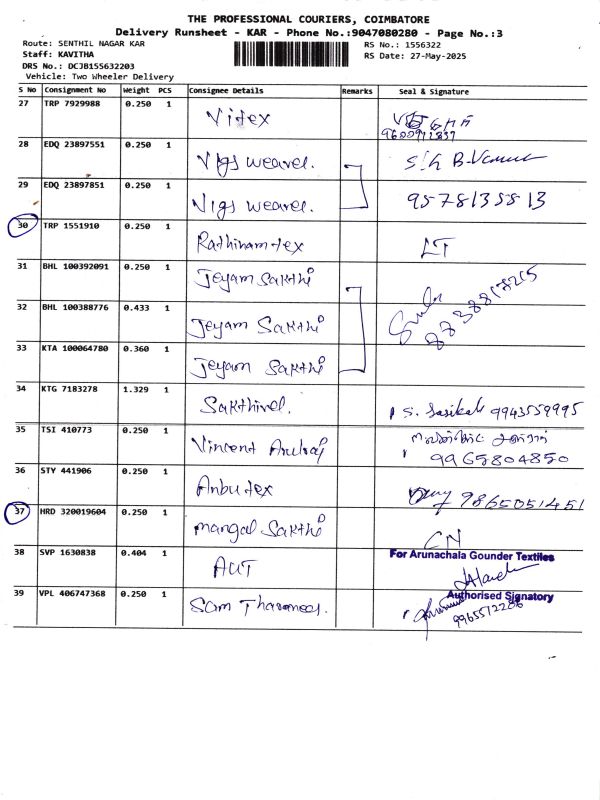 THE PROFESSIONAL COURIERS, COIMBATORE
Delivery Runsheet - KAR - Phone No.:9047080280 - Page No.:3
Route: SENTHIL NAGAR KAR
Staff: KAVITHA
DRS No.: DCJB155632203
Vehicle: Two Wheeler Delivery
RS No.: 1556322
RS Date: 27-May-2025
S No Consignment No Weight PCS Consignee Details Remarks Seal & Signature
27 TRP 7929988 0.250 1 Vitex
28 EDQ 23897551 0.250 1 Vigs weaver.
29 EDQ 23897851 0.250 1 Vigs weaver. 9578135813
30 TRP 1551910 0.250 1 Rathinam tex LT
31 BHL 100392091 0.250 1 Jeyam Sakthi
32 BHL 100388776 0.433 1 Jeyam Sakthi
33 KTA 100064780 0.360 1 Jeyam Sakthi
34 KTG 7183278 1.329 1 Sakthivel. S. Sasikala 9943559995
35 TSI 410773 0.250 1 Vincent Arulraj 9965804850
36 STY 441906 0.250 1 Anbu tex 9865051451
37 HRD 320019604 0.250 1 Mangal Sakthi CN
38 SVP 1630838 0.404 1 AUT For Arunachala Gounder Textiles
Authorised Signatory
39 VPL 406747368 0.250 1 Sam